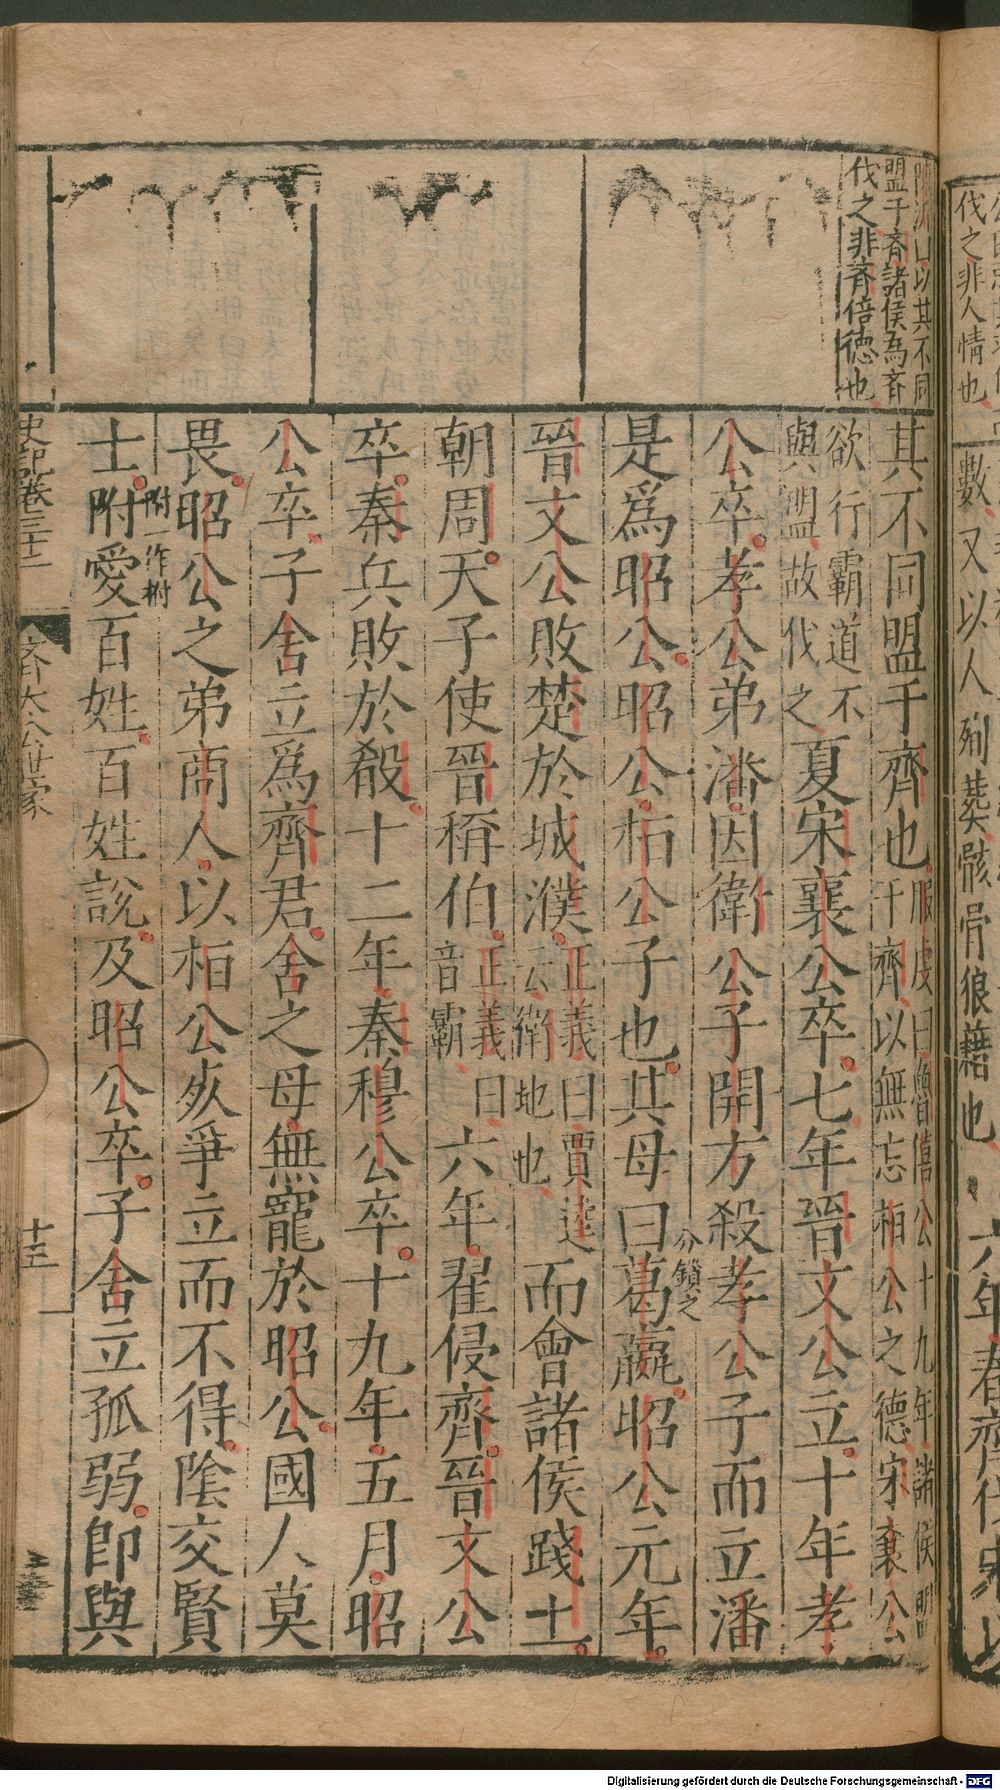 伐之非人情也
數又以人殉葬骸骨狼藉也
六年春齊伐宋以
以其不同
盟于齊諸侯為齊
伐之非齊倍德也
其不同盟于齊也服虔曰魯僖公十九年諸侯盟
于齊以無忘桓公之德宋襄公
欲行霸道不
與盟故伐之夏宋襄公卒七年晉文公立十年孝
公卒孝公弟潘因衛公子開方殺孝公子而立潘
是爲昭公昭公桓公子也其母曰葛嬴昭公元年
分鎖之
晉文公敗楚於城濮正義曰賈逵
云衛地也而會諸侯踐土
朝周天子使晉稱伯正義曰
音霸六年翟侵齊晉文公
卒秦兵敗於殽十二年秦穆公卒十九年五月昭
公卒子舍立爲齊君舍之母無寵於昭公國人莫
畏昭公之弟商人以桓公死爭立而不得陰交賢
附一作拊
士附愛百姓百姓說及昭公卒子舍立孤弱卽與
史記卷三十二
齊太公世家
十三
Digitalisierung gefördert durch die Deutsche Forschungsgemeinschaft - DFG